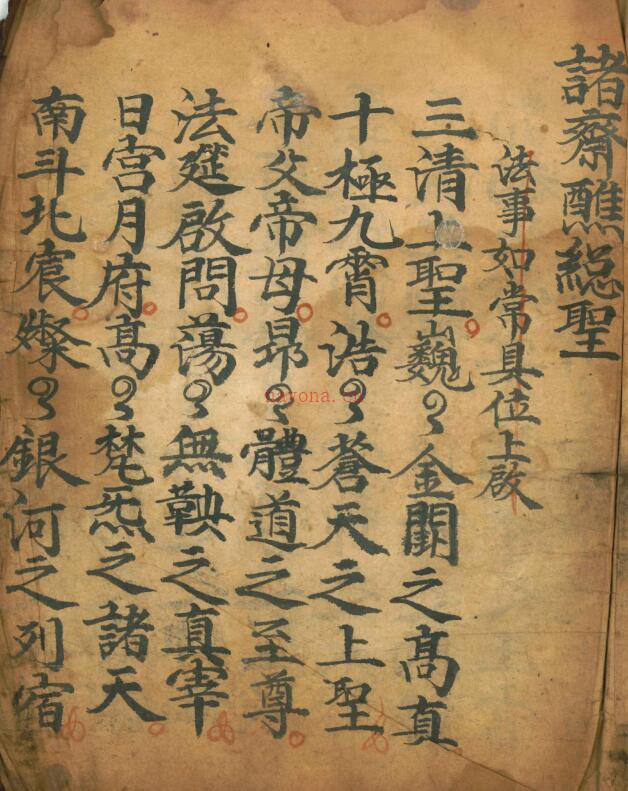 諸齋醮總聖
法事如常具位上啟
三清上聖巍〻金闕之髙真
十極九霄浩〻蒼天之上聖
帝父帝母昂〻體道之至尊
法筵啟問蕩〻無鞅之真宰
日宫月府髙〻梵炁之諸天
南斗北宸燦〻銀河之列宿
nayona.cn